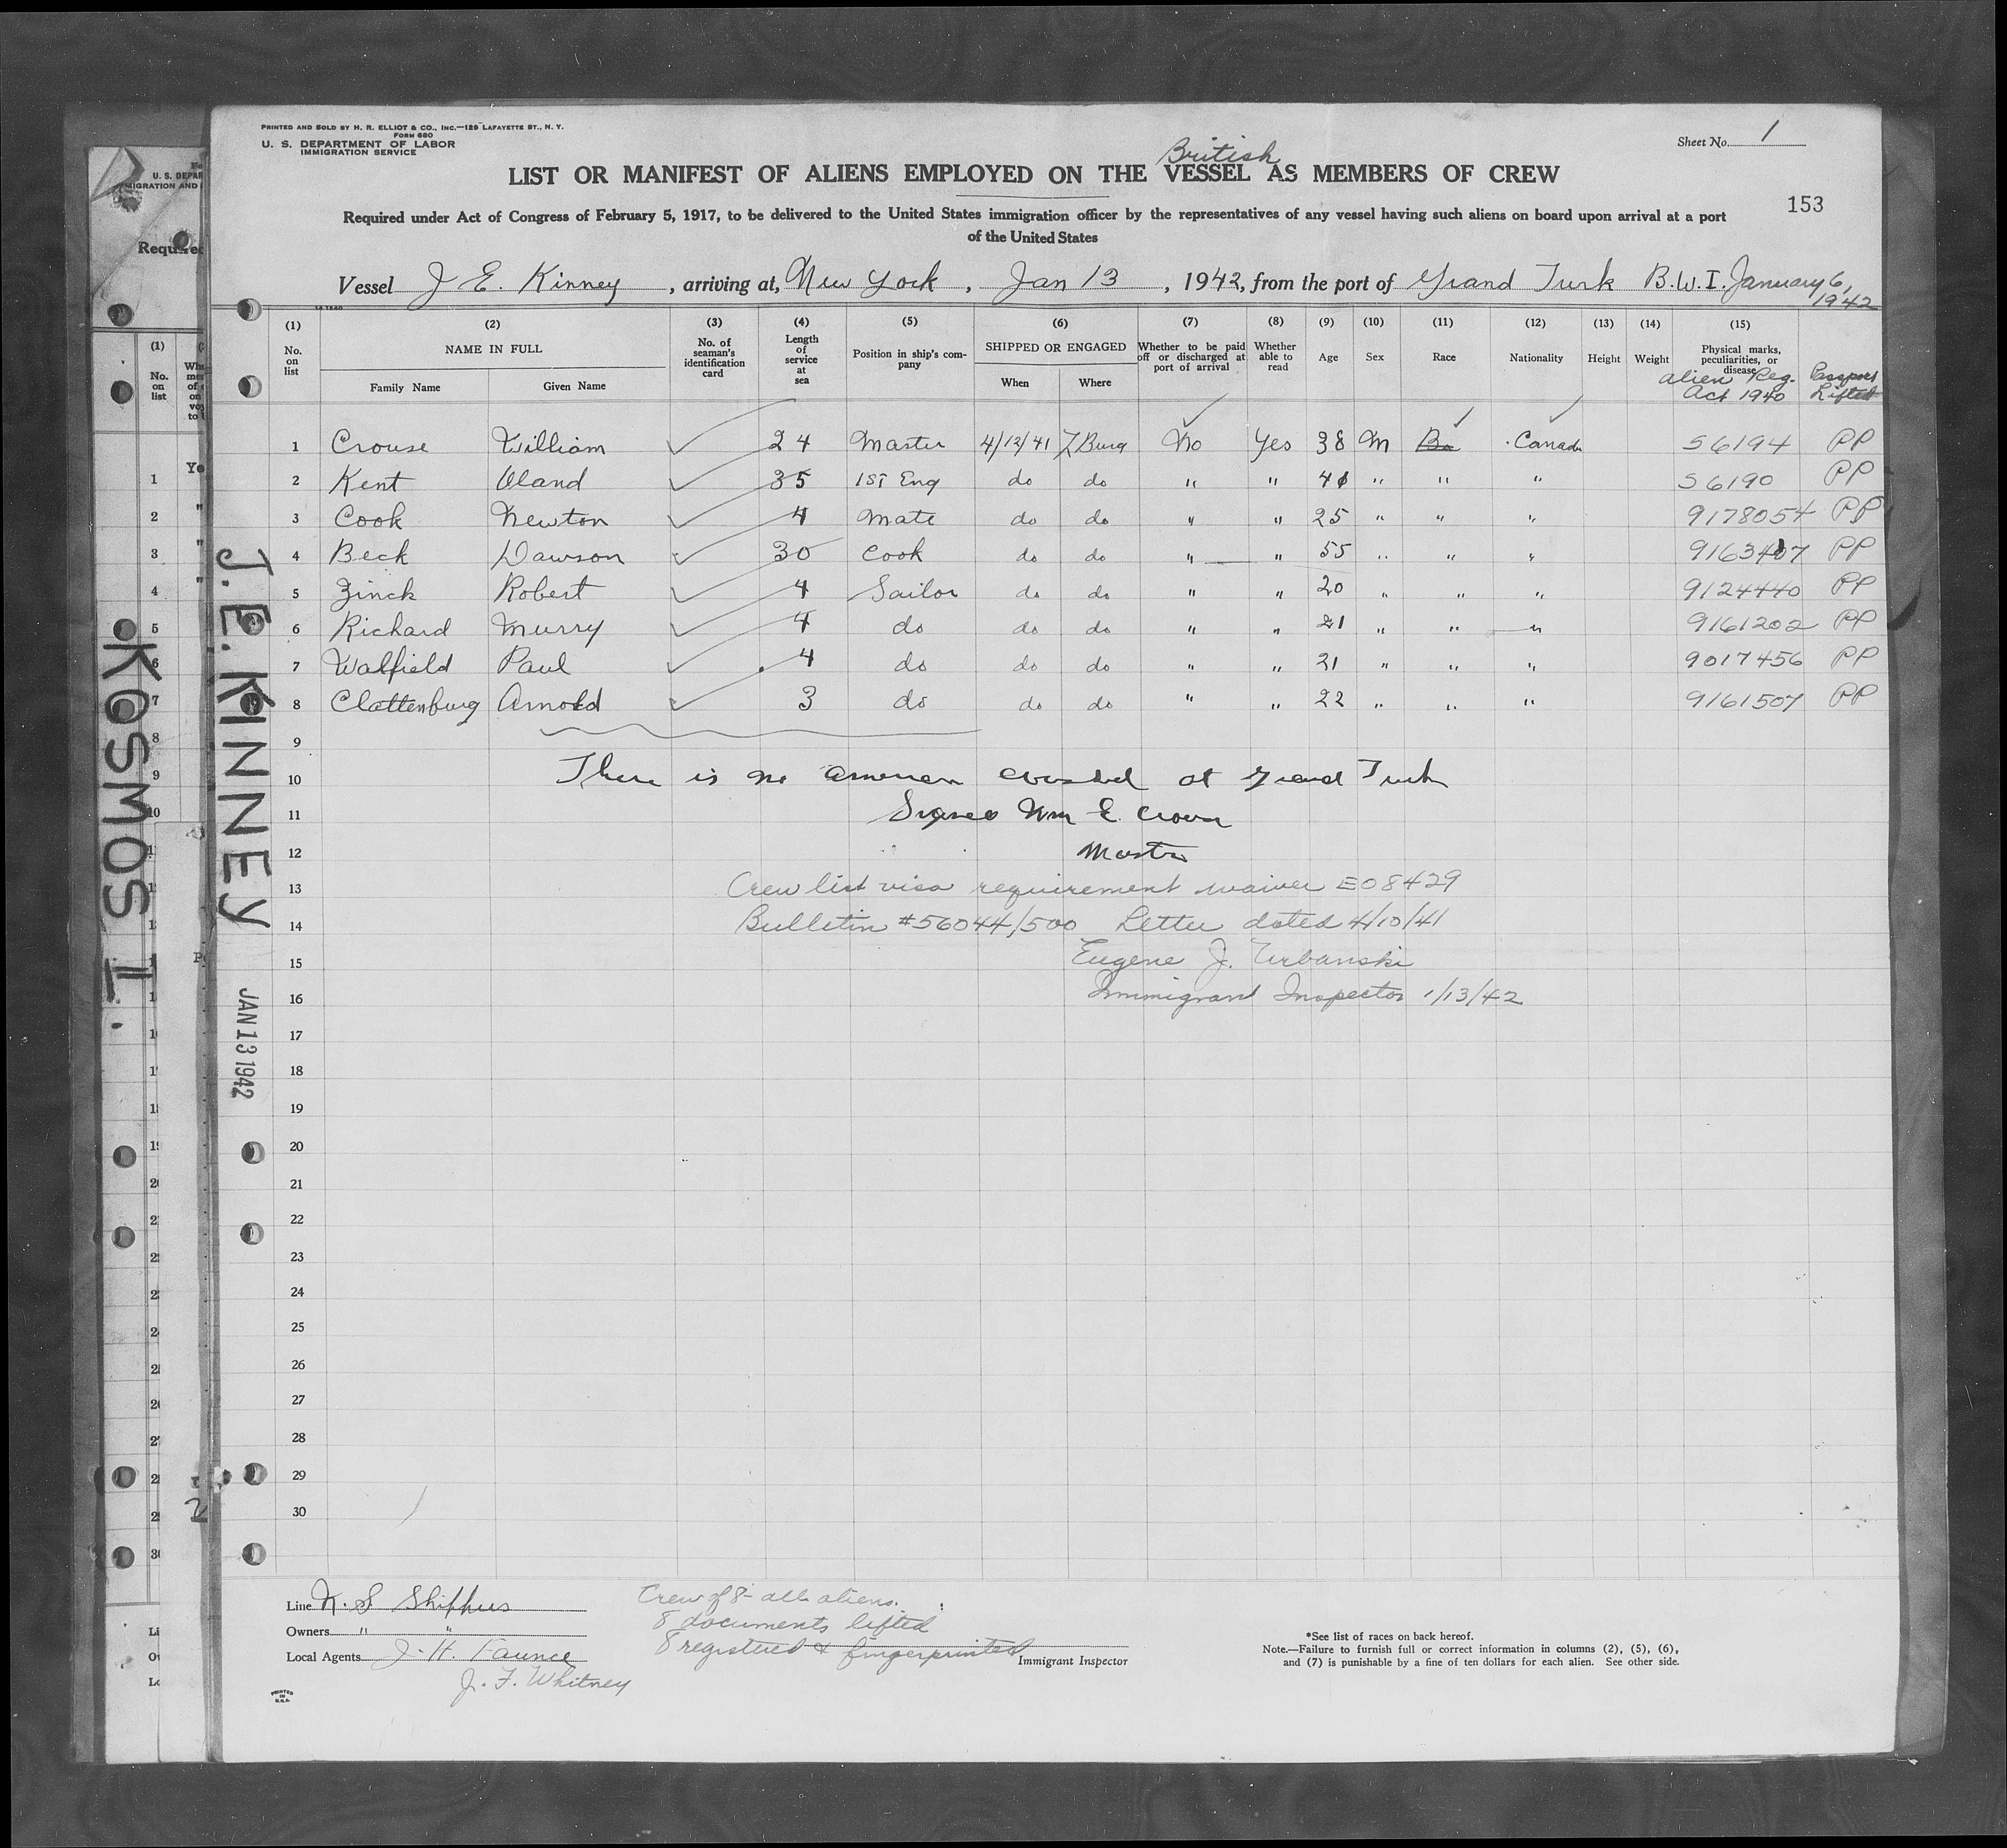 PRINTED AND SOLD BY H. R. ELLIOT & CO., INC.—129 LAFAYETTE ST., N. Y.
FORM 680
U. S. DEPARTMENT OF LABOR
IMMIGRATION SERVICE
Sheet No. 1
British
LIST OR MANIFEST OF ALIENS EMPLOYED ON THE VESSEL AS MEMBERS OF CREW
153
Required under Act of Congress of February 5, 1917, to be delivered to the United States immigration officer by the representatives of any vessel having such aliens on board upon arrival at a port
of the United States
Vessel J E. Kinney, arriving at, New York, Jan 13, 1942, from the port of Grand Turk B.W.I. January 6,
1942
(1) No. on list
(2) NAME IN FULL Family Name Given Name
(3) No. of seaman's identification card
(4) Length of service at sea
(5) Position in ship's company
(6) SHIPPED OR ENGAGED When Where
(7) Whether to be paid off or discharged at port of arrival
(8) Whether able to read
(9) Age
(10) Sex
(11) Race
(12) Nationality
(13) Height
(14) Weight
(15) Physical marks, peculiarities, or disease
Alien Reg. Act 1940
Passport Lifted
1 Crouse William 24 Master 4/12/41 L Burg No Yes 38 M Canada 56194 PP
2 Kent Oland 35 1ST Eng do do " " " " " 56190 PP
3 Cook Newton 4 Mate do do " " 25 " " " 9178054 PP
4 Beck Dawson 30 Cook do do " " 55 " " " PP
5 Zinck Robert 4 Sailor do do " " 20 " " " 9124440 PP
6 Richard Murry 4 do do do " " 21 " " " 9161202 PP
7 Walfield Paul 4 do do do " " 21 " " " 9017456 PP
8 Clattenburg Arnold 3 do do do " " 22 " " " 9161507 PP
9
10 There is no American consul at Grand Turk
11 Signed Wm E. Crouse
12 Master
13 Crew list visa requirement waiver EO 8429
14 Bulletin #56044/500 Letter dated 4/10/41
15 Eugene J. Urbanski
16 Immigrant Inspector 1/13/42
17
18
19
20
21
22
23
24
25
26
27
28
29
30
Line N. S Shippers
Owners " "
Local Agents J. H. Faunce
J. F. Whitney
Crew of 8 - all aliens.
8 documents lifted
8 registered & fingerprinted
Immigrant Inspector
*See list of races on back hereof.
Note.—Failure to furnish full or correct information in columns (2), (5), (6),
and (7) is punishable by a fine of ten dollars for each alien. See other side.
PRINTED IN U.S.A.
J. E. KINNEY
JAN 13 1942
KOSMOS I.